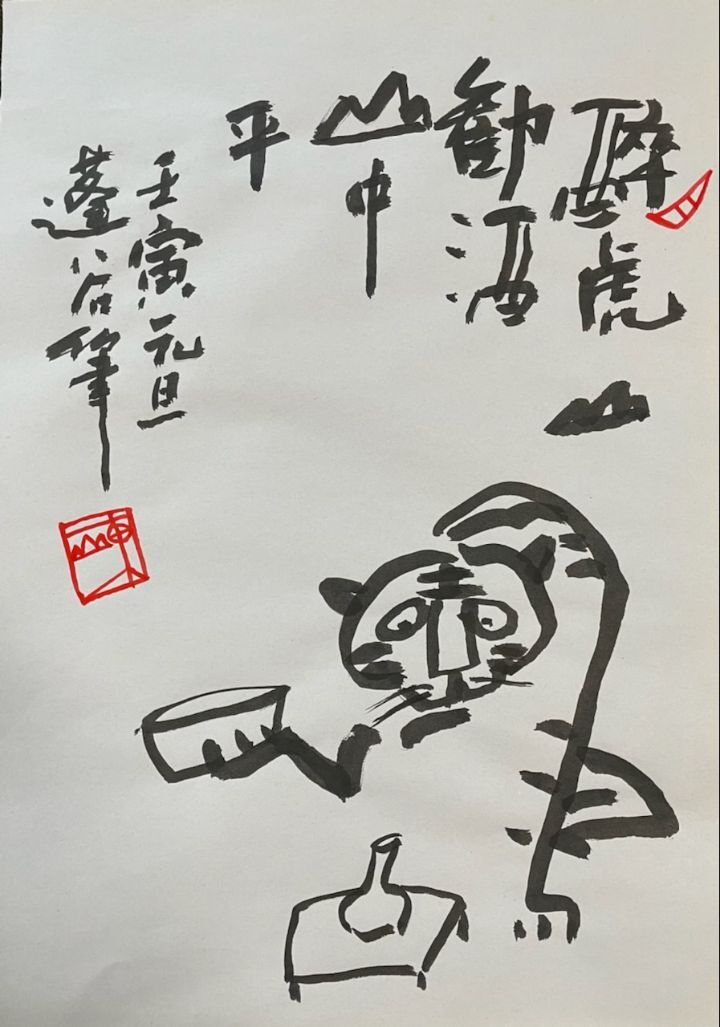 醉虎
勸酒
山中
平
壬寅元旦
蓬谷筆